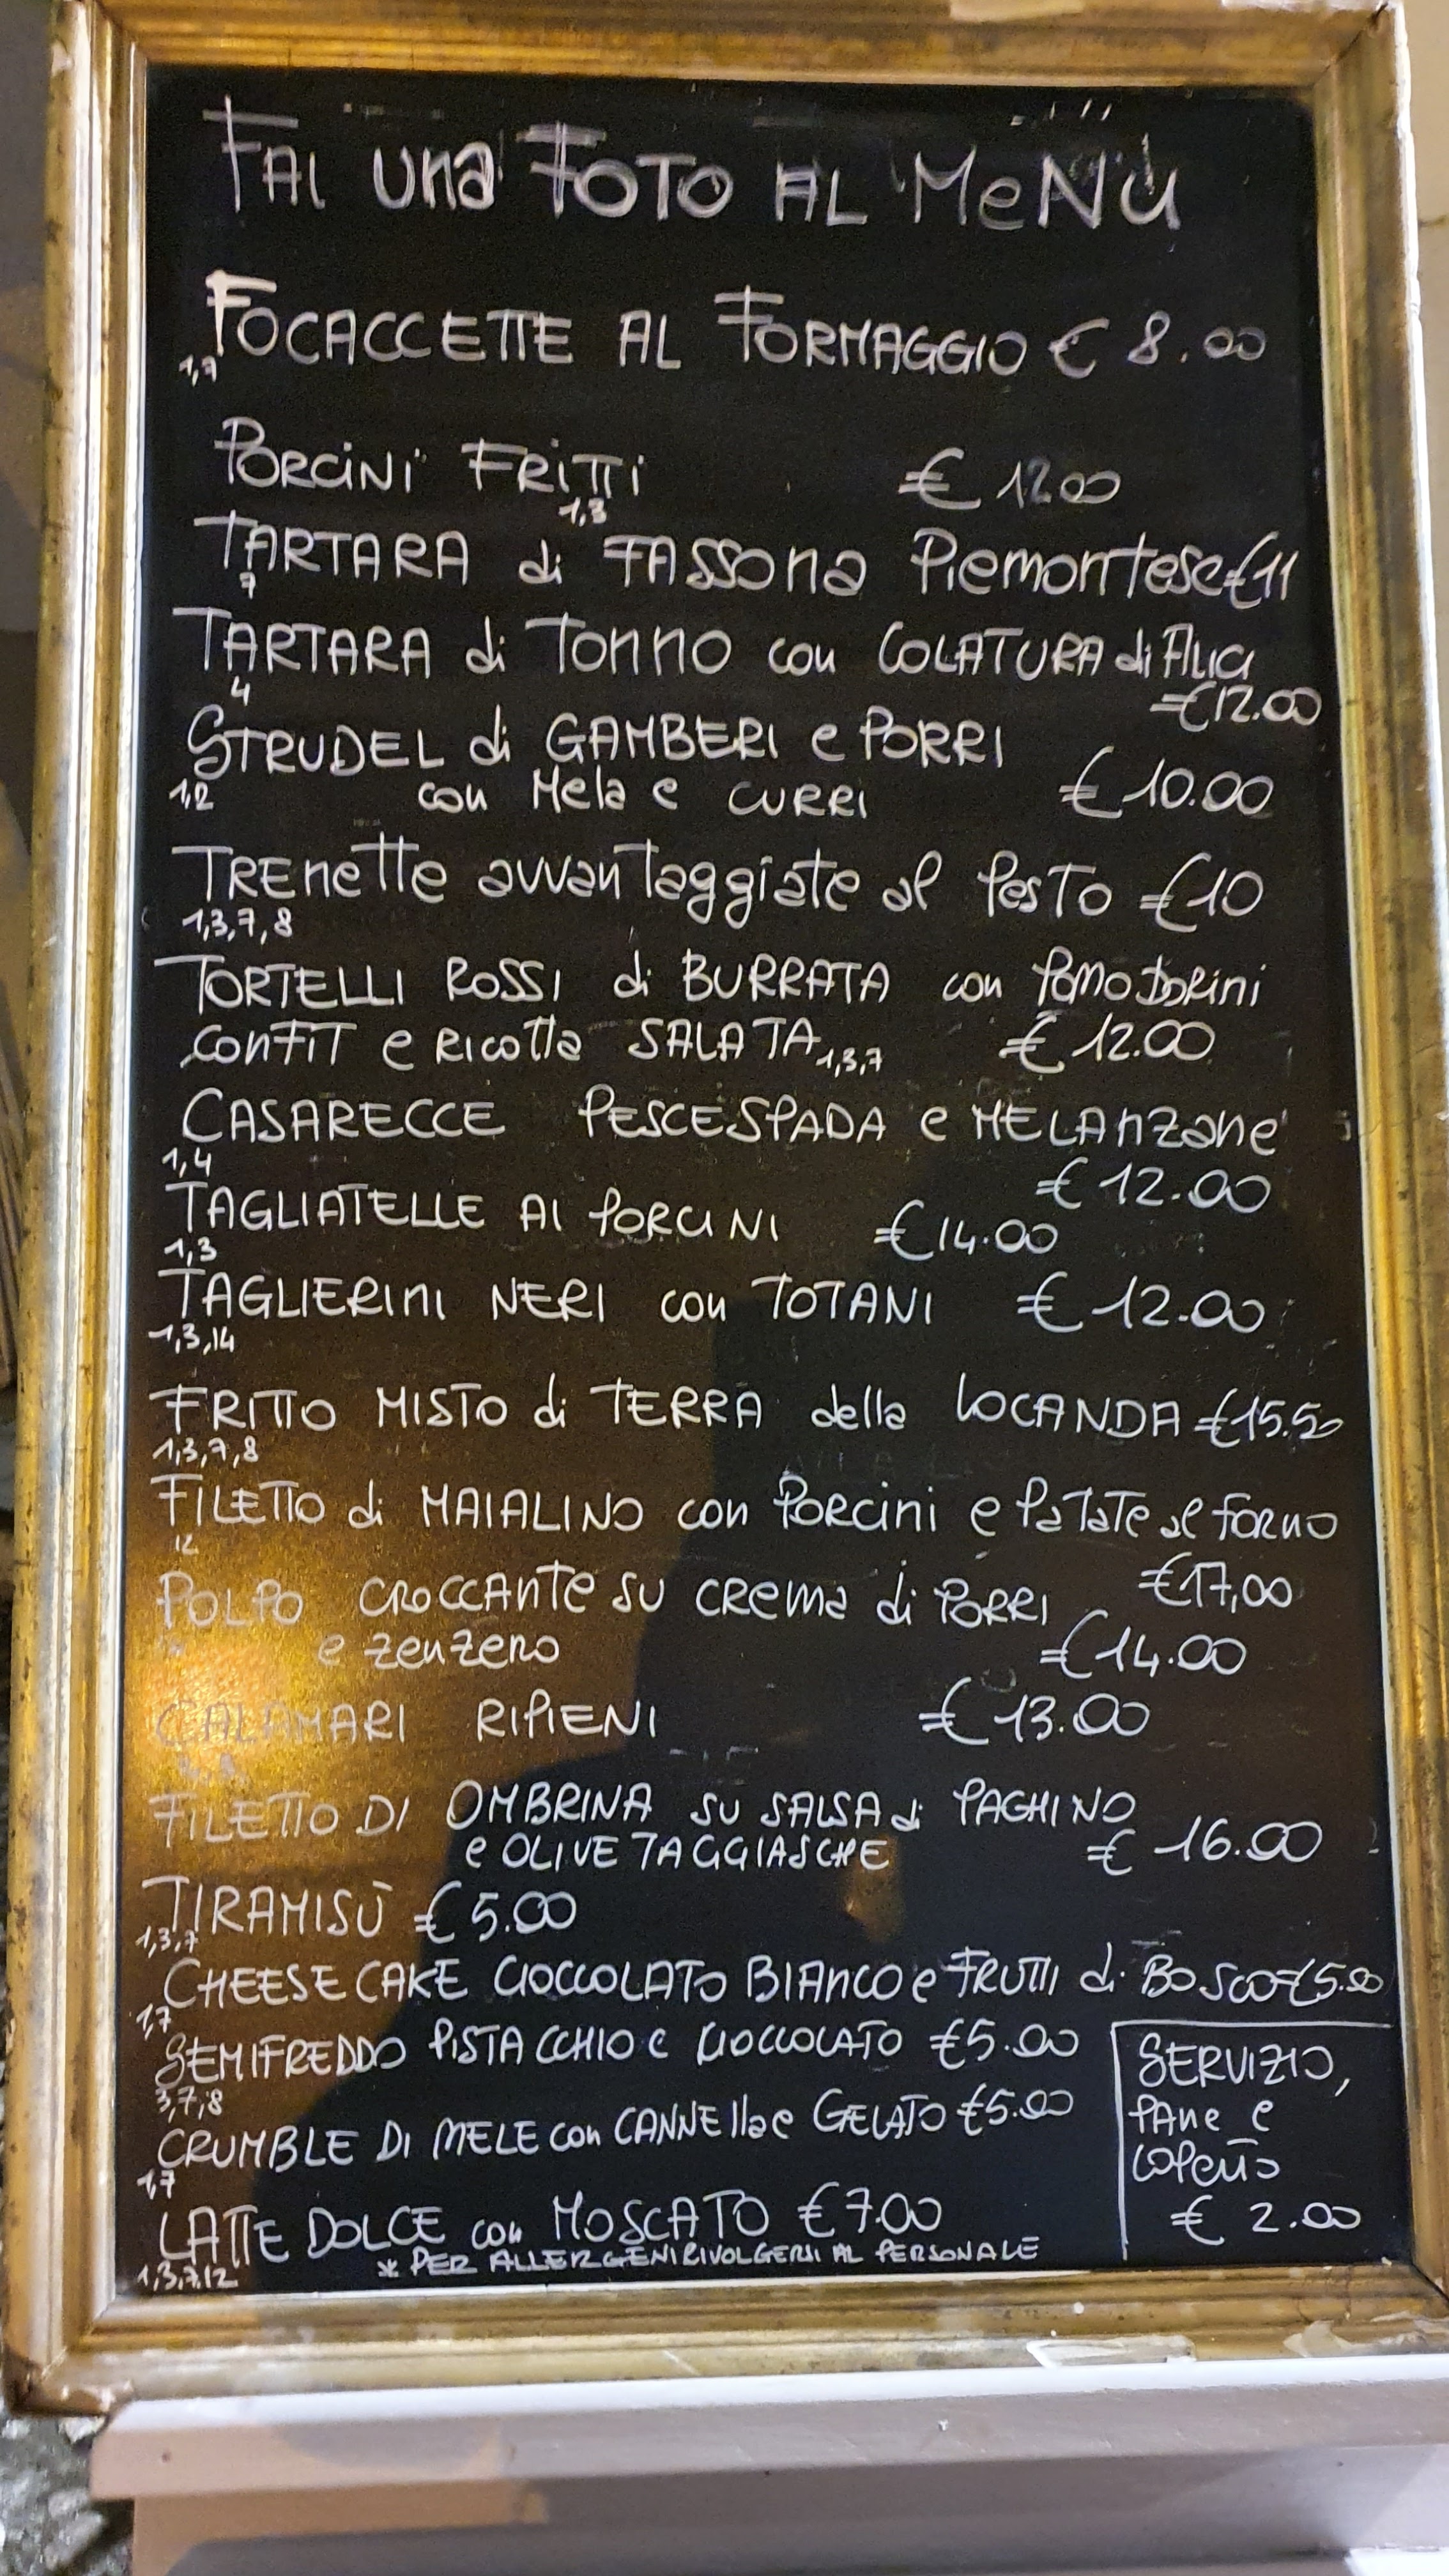 FAI una FOTO AL MeNù
FOCACCETTE AL FORMAGGIO € 8.00
1,7
PORCINI FRITTI € 12.00
1,3
TARTARA di FASSONA Piemontese €11
7
TARTARA di TONNO con COLATURA di Alici
4
€12.00
STRUDEL di GAMBERI e PORRI
1,2 con Mela e CURRI € 10.00
TRENETTE avvantaggiate al PesTO €10
1,3,7,8
TORTELLI ROSSI di BURRATA con POMODORINI
CONFIT e RICOTTA SALATA 1,3,7 € 12.00
CASARECCE PESCESPADA e MELANZANE
1,4
€ 12.00
TAGLIATELLE AI PORCINI €14.00
1,3
TAGLIERINI NERI con TOTANI € 12.00
1,3,14
FRITTO MISTO di TERRA della LOCANDA €15.50
1,3,7,8
FILETTO di MAIALINO con Porcini e PaTaTe al forno
12
€17,00
POLPO CROCCANTE SU CREMA di PORRI
e zenzero €14.00
CALAMARI RIPIENI € 13.00
FILETTO DI OMBRINA SU SALSA di PAGHINO
e OLIVE TAGGIASCHE € 16.00
TIRAMISÙ € 5.00
1,3,7
CHEESE CAKE CIOCCOLATO BIANCO e FRUTTI di BOSCO €5.00
1,7
SEMIFREDDO PISTACCHIO e CIOCCOLATO €5.00
3,7,8
CRUMBLE DI MELE con CANNElla e GELATO €5.00
1,7
LATTE DOLCE con MOSCATO € 7.00
1,3,7,12
* PER ALLERGENI RIVOLGERSI AL PERSONALE
SERVIZIO,
PANE e
COPERTO
€ 2.00